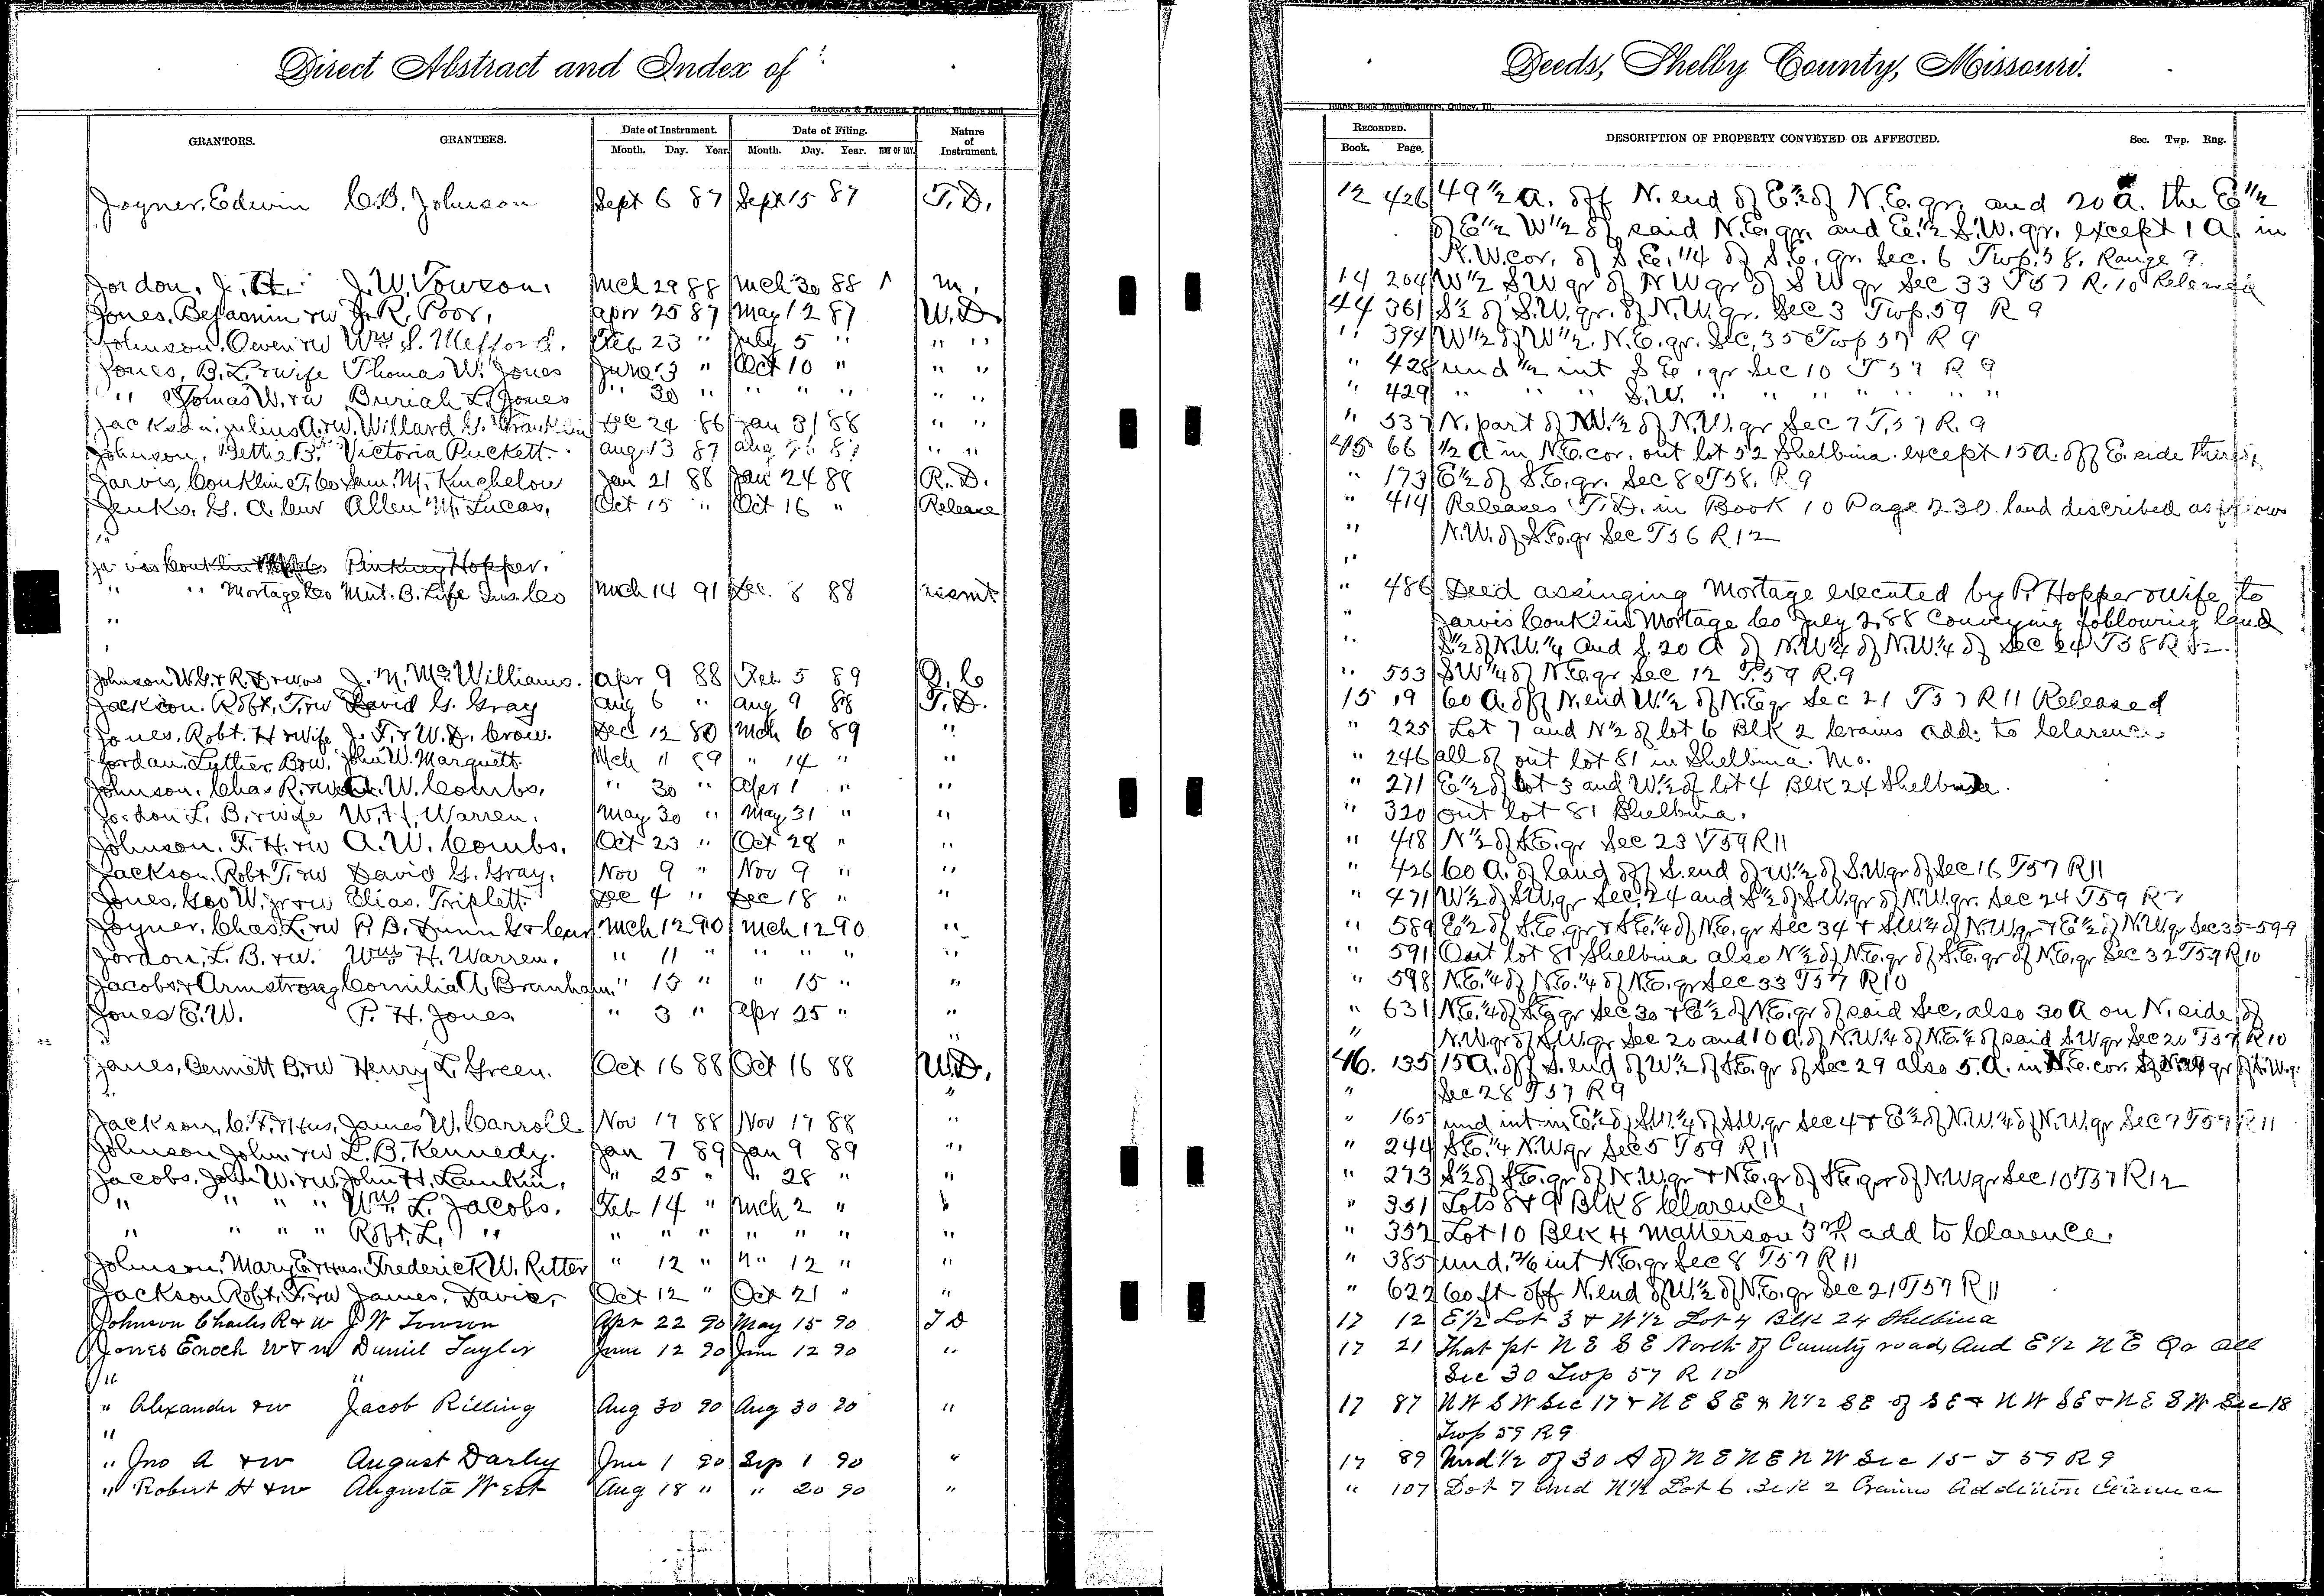 Direct Abstract and Index of
Deeds, Shelby County, Missouri.
CADOGAN & HATCHER, Printers, Binders and
Blank Book Manufacturers, Quincy, Ill.
GRANTORS. GRANTEES. Date of Instrument. Date of Filing. Nature of Instrument. RECORDED. DESCRIPTION OF PROPERTY CONVEYED OR AFFECTED. Sec. Twp. Rng.
Month. Day. Year. Month. Day. Year. TIME OF DAY. Book. Page.
Joyner, Edwin C.B. Johnson Sept 6 87 Sept 15 87 T.D. 12 426 49 1/2 A. off N. end of E 1/2 of N.E. qr. and 20 A. the E 1/2
of E 1/2 W 1/2 of said N.E. qr. and E. 1/2 S.W. qr. except 1 A. in
N.W. cor. of S.E. 1/4 of S.E. qr. Sec. 6 Twp. 58, Range 9.
Jordon, J. H. J. W. Towson. Mch 29 88 Mch 30 88 M. 14 204 W 1/2 S W qr of N W qr of S W qr Sec 33 T57 R. 10 Released
Jones, Benjamin & w J. R. Poor, Apr 25 87 May 12 87 W.D. 44 361 S 1/2 of S.W. qr. of N.W. qr. Sec 3 Twp. 59 R 9
Johnson, Owen & w Wm S. Mefford. Feb 23 " July 5 " " " " 394 W 1/2 of W 1/2 N.E. qr. Sec, 35 Twp 57 R 9
Jones, B. L. & wife Thomas W. Jones June 3 " Oct 10 " " " " 428 und 1/2 int S E qr Sec 10 T 57 R 9
" Tomas W. & w Buriah L. Jones " 30 " " " " " " " 429 " " " S.W. " " " " " "
Jackson, Julius A. & w. Willard G. Franklin Dec 24 86 Jan 31 88 " " " 537 N. part of W. 1/2 of N.W. qr Sec 7 T. 57 R. 9
Johnson, Bettie B. Victoria Puckett. Aug 13 87 Aug 26 87 " " 45 66 1/2 A in N.E. cor. out lot 52 Shelbina. except 15 A. off E. side
Jarvis, Conklin T. Co Sam. M. Kinchelow Jan 21 88 Jan 24 88 R. D. " 173 E 1/2 of S.E. qr. Sec 8 T58. R 9
Jenks, G. A. Allen M. Lucas, Oct 15 " Oct 16 " Release " 414 Releases T.D. in Book 10 Page 230. land described as follows
" " N.W. of S.E. qr Sec T56 R12
Jarvis Conklin Pinkney Hopper. "
" " Mortage Co Mut. B. Life Ins. Co Mch 14 91 Dec. 8 88 " 486 Deed assinging Mortage executed by P. Hopper & wife to
" " Jarvis Conklin Mortage Co July 2, 88 Conveying following land
" " S 1/2 of N.W. 1/4 and S. 20 A of N.W 1/4 of N.W. 1/4 of Sec 24 T58 R 12
Johnson W.G. & R. J. M. McWilliams. Apr 9 88 Feb 5 89 Q. C " 553 SW 1/4 of N.E. qr Sec 12 T. 59 R. 9
Jackson. Robt. T. & w David G. Gray Aug 6 " Aug 9 88 T. D. 15 19 60 A. off N. end W. 1/2 of N.E. qr Sec 21 T57 R11 Released
Jones, Robt. H & wife J. T. & W. D. Crow. Dec 12 80 Mch 6 89 " " 225 Lot 7 and N 1/2 of lot 6 Blk 2 Crains add. to Clarence.
Jordan, Luther B & w. John W. Marquett. Mch 11 89 " 14 " " " 246 all of out lot 81 in Shelbina. Mo.
Johnson. Chas R. & w A. W. Combs. " 30 " Apr 1 " " " 271 E 1/2 of Lot 3 and W. 1/2 of lot 4 Blk 24 Shelbina.
Jordon L. B. & wife W. H. Warren. May 30 " May 31 " " " 320 out lot 81 Shelbina.
Johnson. T. H. & w A. W. Combs. Oct 23 " Oct 28 " " " 418 N 1/2 of S.E. qr Sec 23 T59 R11
Jackson, Robt T. & w David G. Gray. Nov 9 " Nov 9 " " " 426 60 A. of land off S. end of W. 1/2 of S.W qr of Sec 16 T57 R11
Jones, Geo W. jr & w Elias Triplett. Dec 4 " Dec 18 " " " 471 W 1/2 of SW. qr Sec, 24 and S 1/2 of S.W. qr of N.W. qr. Sec 24 T59 R
Joyner, Chas. L. & w P. B. Dunn Mch 12 90 Mch 12 90 " " 589 E 1/2 of S.E. qr & S.E. 1/4 of N.E. qr Sec 34 & S.W. 1/4 of N.W. qr & E 1/2 of N.W qr Sec 35-59-9
Jordon, L. B. & w. Wm H. Warren. " 11 " " " " " " 591 Out lot 81 Shelbina also N 1/2 of N.E. qr of S.E. qr of N.E. qr Sec 32 T59 R10
Jacobs & Armstrong Cornilia A. Branham " 13 " " 15 " " " 598 N.E. 1/4 of N.E. 1/4 of N.E. qr Sec 33 T57 R10
Jones E. W. P. H. Jones. " 3 " Apr 25 " " " 631 N.E. 1/4 of S.E. qr Sec 30 & E 1/2 of N.E. qr of said Sec, also 30 A on N. side of
" " N.W. qr of S.W. qr Sec 20 and 10 A. of N.W. 1/4 of N.E. 1/4 of said S.W qr Sec 20 T57 R10
James, Bennett B. & w Henry L. Green. Oct 16 88 Oct 16 88 W.D. 46. 135 15 A. off S. end of W 1/2 of S.E. qr of Sec 29 also 5. A. in N.E. cor.
" " " Sec 28 T57 R9
Jackson, C. F. & Hus, James W. Carroll Nov 17 88 Nov 17 88 " " 165 und int in E. 1/2 of S.W. 1/4 of S.W. qr Sec 4 & E 1/2 of N.W. 1/4 of N.W. qr Sec 9 T59 R11
Johnson John & w L. B. Kennedy. Jan 7 89 Jan 9 89 " " 244 S.E. 1/4 N.W. qr Sec 5 T59 R11
Jacobs, John W. & w. John H. Lankin, " 25 " " 28 " " " 273 S 1/2 of S.E. qr of N.W. qr & N.E. qr of S.E. qr of N.W qr Sec 10 T57 R12
" " " " Wm L. Jacobs. Feb 14 " Mch 2 " " 351 Lots 8 & 9 Blk 8 Clarence.
" " " " Robt. L. " " " " " " " " " 352 Lot 10 Blk 4 Matterson 3rd add to Clarence.
Johnson, Mary E. & Hus. Frederick W. Ritter " 12 " " 12 " " " 385 und. int N.E. qr Sec 8 T57 R11
Jackson Robt. T. & w James. Davis, Oct 12 " Oct 21 " " " 622 60 ft off N. end of W. 1/2 of N.E. qr Sec 21 T57 R11
Johnson Charles R & w J W Towson Apr 22 90 May 15 90 T D 17 12 E 1/2 Lot 3 & W 1/2 Lot 4 Blk 24 Shelbina
Jones Enoch W & w Daniel Taylor June 12 90 June 12 90 " 17 21 That pt N E S E North of County road, And E 1/2 N E Qr all
" " Sec 30 Twp 57 R 10
" Alexander & w Jacob Rilling Aug 30 90 Aug 30 90 " 17 87 N W S W Sec 17 & N E S E & N 1/2 S E of S E & N W S E & N E S W Sec 18
" Twp 59 R 9
" Jno A & w August Darby June 1 90 Sep 1 90 " 17 89 Und 1/2 of 30 A of N E N E N W Sec 15 - T 59 R 9
" Robert H & w Augusta West Aug 18 " " 20 90 " " 107 Lot 7 And N 1/2 Lot 6 Blk 2 Crains Addition Clarence